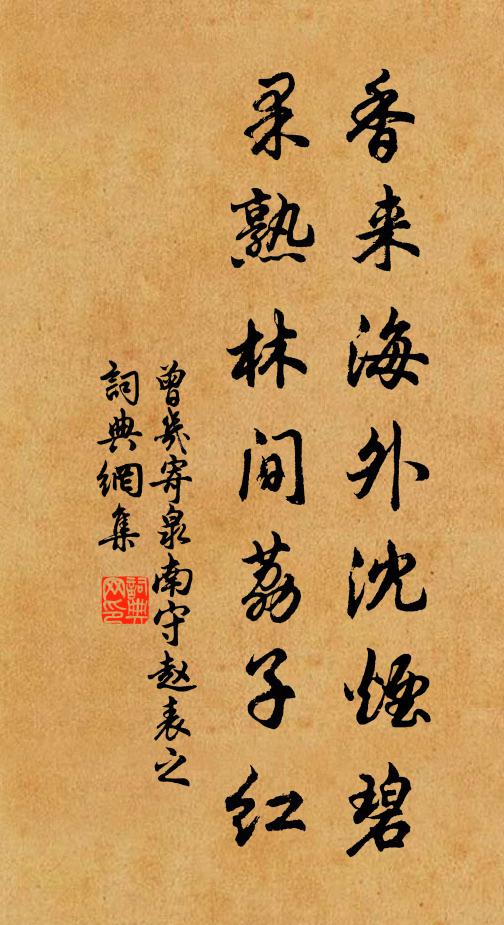 香来海外沈煙碧
果熟林间荔子红
曾幾寄泉南守赵表之
詞典網集
詞典网印